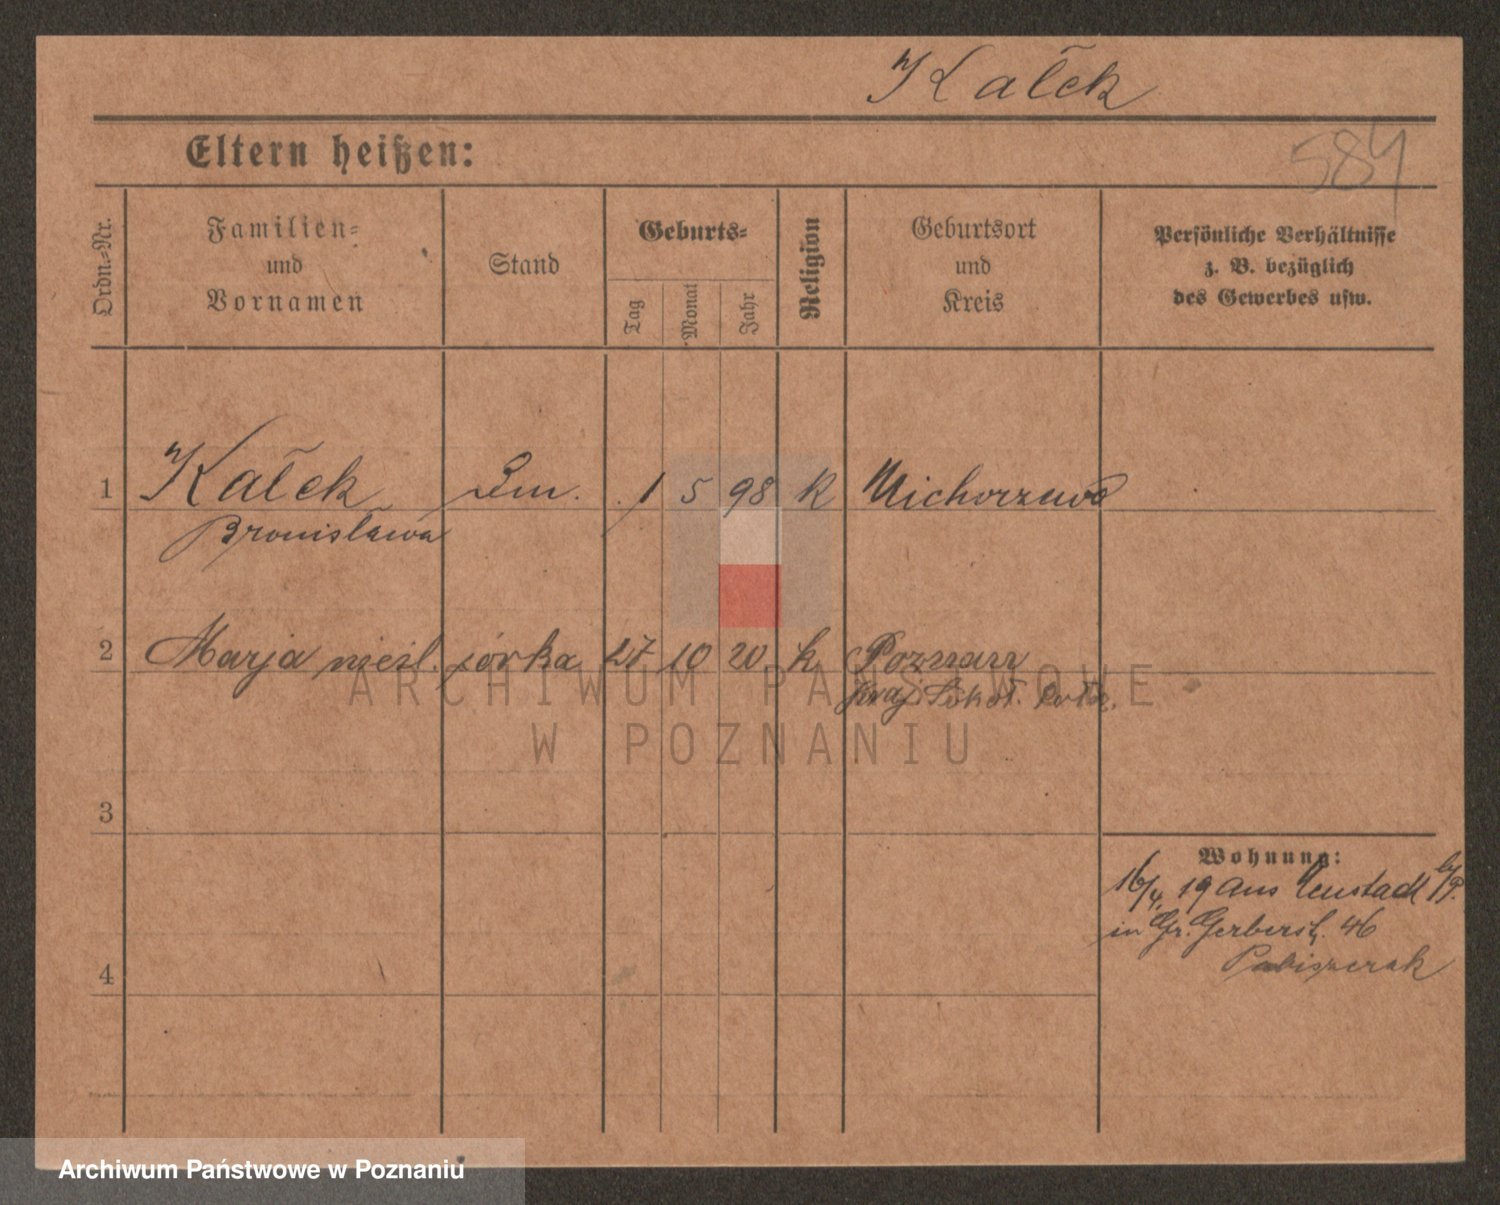 Kałek
584
Eltern heißen:
Ordn.-Nr.
Familien-
und
Vornamen
Stand
Geburts-
Tag
Monat
Jahr
Religion
Geburtsort
und
Kreis
Persönliche Verhältnisse
z. B. bezüglich
des Gewerbes usw.
1 Kałek 1 5 98 k Michorzewo
Bronisława
2 Marja nieśl. córka 27 10 20 k Poznań
ARCHIWUM PAŃSTWOWE
W POZNANIU
3
Wohnung:
16/4. 19 aus Neustadt b/P.
in Gr. Gerberstr. 46
4
Archiwum Państwowe w Poznaniu